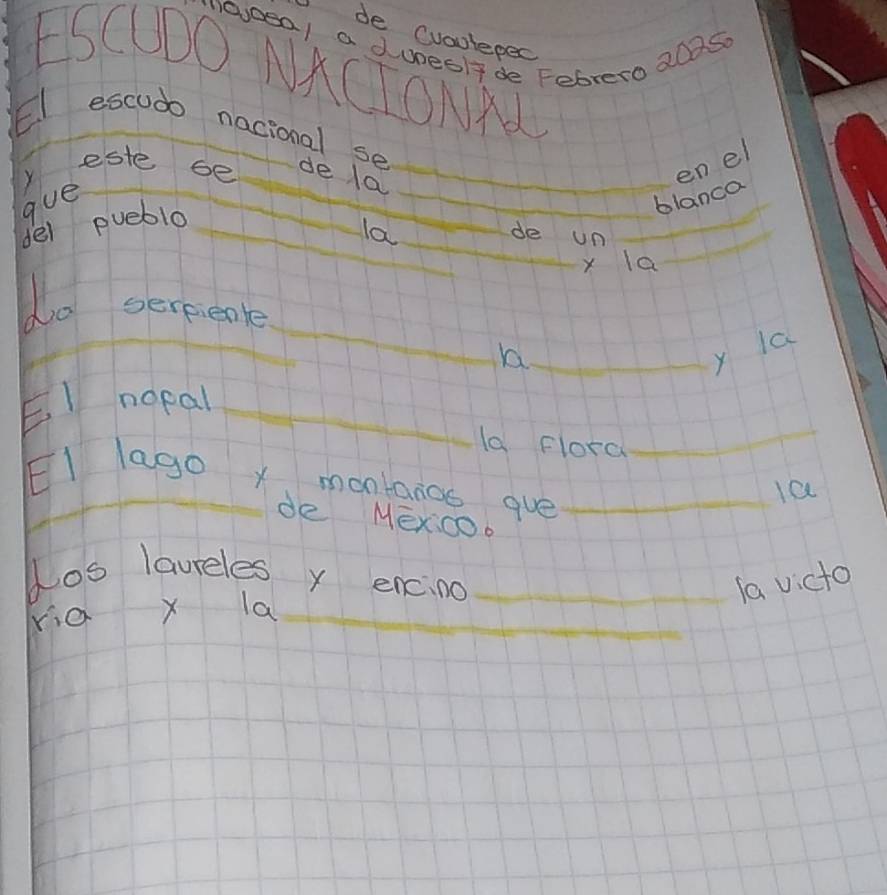 de Cuautepec
a Lunes 17 de Febrero 2025.
ESCUDO NACIONAL
El escudo nacional se ______ en el
______ de la ______ blanca
y este se ______ de un ______
que ______ la ______ y la ______
del pueblo ______
La serpiente ______ la ______ y la
______
El nopal ______ la flora ______
El lago y montañas que ______ la
______ de México.
Los laureles y encino ______ la victo
ria y la ______